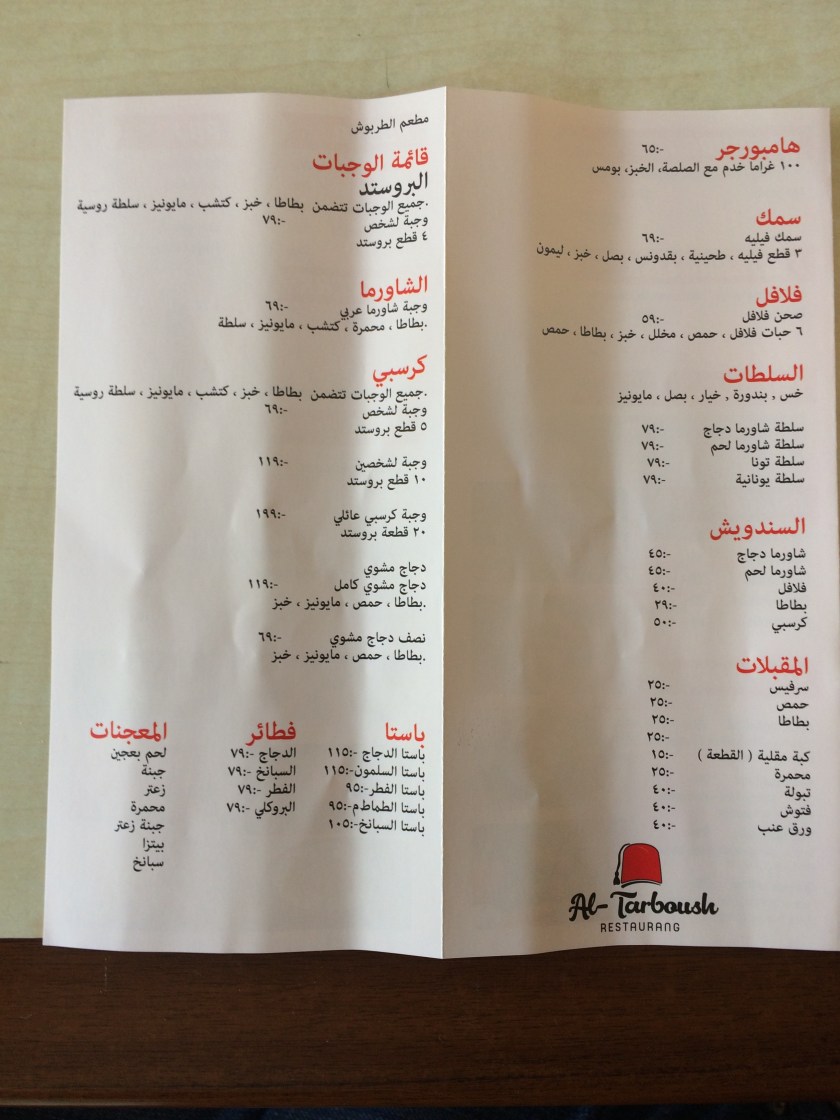 هامبورجر ٦٥:-
١٠٠ غراما خدم مع الصلصة، الخبز، بومس
سمك
سمك فيليه ٦٩:-
٣ قطع فيليه ، طحينية ، بقدونس ، بصل ، خبز ، ليمون
فلافل
صحن فلافل ٥٩:-
٦ حبات فلافل ، حمص ، مخلل ، خبز ، بطاطا ، حمص
السلطات
خس , بندورة , خيار ، بصل ، مايونيز
سلطة شاورما دجاج ٧٩:-
سلطة شاورما لحم ٧٩:-
سلطة تونا ٧٩:-
سلطة يونانية ٧٩:-
السندويش
شاورما دجاج ٤٥:-
شاورما لحم ٤٥:-
فلافل ٤٠:-
بطاطا ٢٩:-
كرسبي ٥٠:-
المقبلات
سرفيس ٢٥:-
حمص ٢٥:-
بطاطا ٢٥:-
٢٥:-
كبة مقلية ( القطعة ) ١٥:-
محمرة ٢٥:-
تبولة ٤٠:-
فتوش ٤٠:-
ورق عنب ٤٠:-
Al-Tarboush
RESTAURANG
مطعم الطربوش
قائمة الوجبات
البروستد
.جميع الوجبات تتضمن بطاطا ، خبز ، كتشب ، مايونيز ، سلطة روسية
وجبة لشخص ٧٩:-
٤ قطع بروستد
الشاورما
وجبة شاورما عربي ٦٩:-
.بطاطا ، محمرة ، كتشب ، مايونيز ، سلطة
كرسبي
.جميع الوجبات تتضمن بطاطا ، خبز ، كتشب ، مايونيز ، سلطة روسية
وجبة لشخص ٦٩:-
٥ قطع بروستد
وجبة لشخصين ١١٩:-
١٠ قطع بروستد
وجبة كرسبي عائلي ١٩٩:-
٢٠ قطعة بروستد
دجاج مشوي
دجاج مشوي كامل ١١٩:-
.بطاطا ، حمص ، مايونيز ، خبز
نصف دجاج مشوي ٦٩:-
.بطاطا ، حمص ، مايونيز ، خبز
باستا
باستا الدجاج ١١٥:-
باستا السلمون١١٥:-
باستا الفطر٩٥:-
باستا الطماطم٩٥:-
باستا السبانخ١٠٥:-
فطائر
الدجاج ٧٩:-
السبانخ ٧٩:-
الفطر ٧٩:-
البروكلي ٧٩:-
المعجنات
لحم بعجين
جبنة
زعتر
محمرة
جبنة زعتر
بيتزا
سبانخ